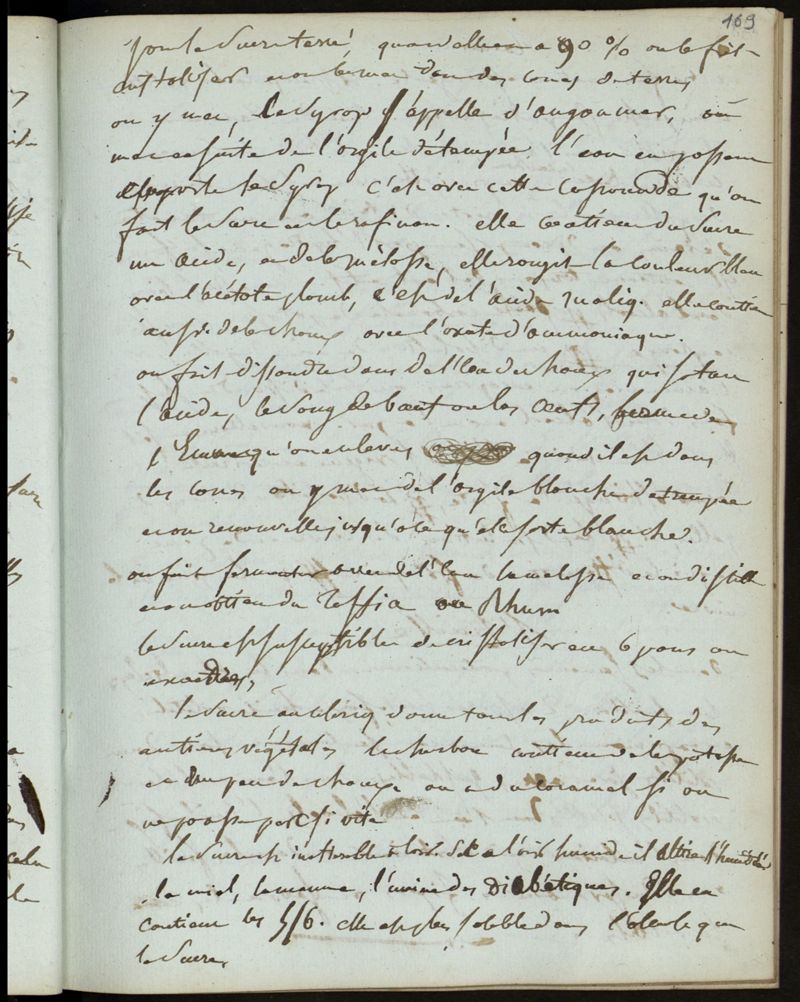 169
pour le Sucre terré, quand elle en a 90 % on le fait
cristaliser et on le met dans des cones de terres
on y met, le Syrop s'appelle d'angoumer, on
met ensuite de l'argile détempée. l'eau en passant
emporte le Syrop c'est avec cette cassonade qu'on
fait le Sucre en le rafinan. elle contient du Sucre
un acide, et de la mélasse, elle rougit la couleur bleu
avec l'acétate plomb, c'est de l'acide maliq. elle contien
aussi de la chaux avec l'oxate d'ammoniaque.
on fait dissoudre dans de l'eau de chaux qui sature
l'acide, le Sang de boeuf ou les oeufs, forme des
Ecumes qu'on enleves quand il est dans
les cones on y met de l'argile blanche detrempée
et on renouvelle jusqu'a ce qu'elle sorte blanche.
on fait fermenter avec de l'eau la melasse et on distille
et on obtien du Taffia ou Rhum
le Sucre est susceptible de cristaliser en 6 pans ou
exaedres,
le Sucre au caloriq donne tous les produits des
autres végétales le charbon contient de la potasse
et un peu de chaux ou a du caramel si on
ne pousse pas si vite
le Sucre est inaltérable à l'air sec a l'air humide il attire l'humidité
le miel, la manne, l'urine des Diabétiques. Elle en
contient les 5/6. elle est plus soluble dans l'alcole que
le Sucre